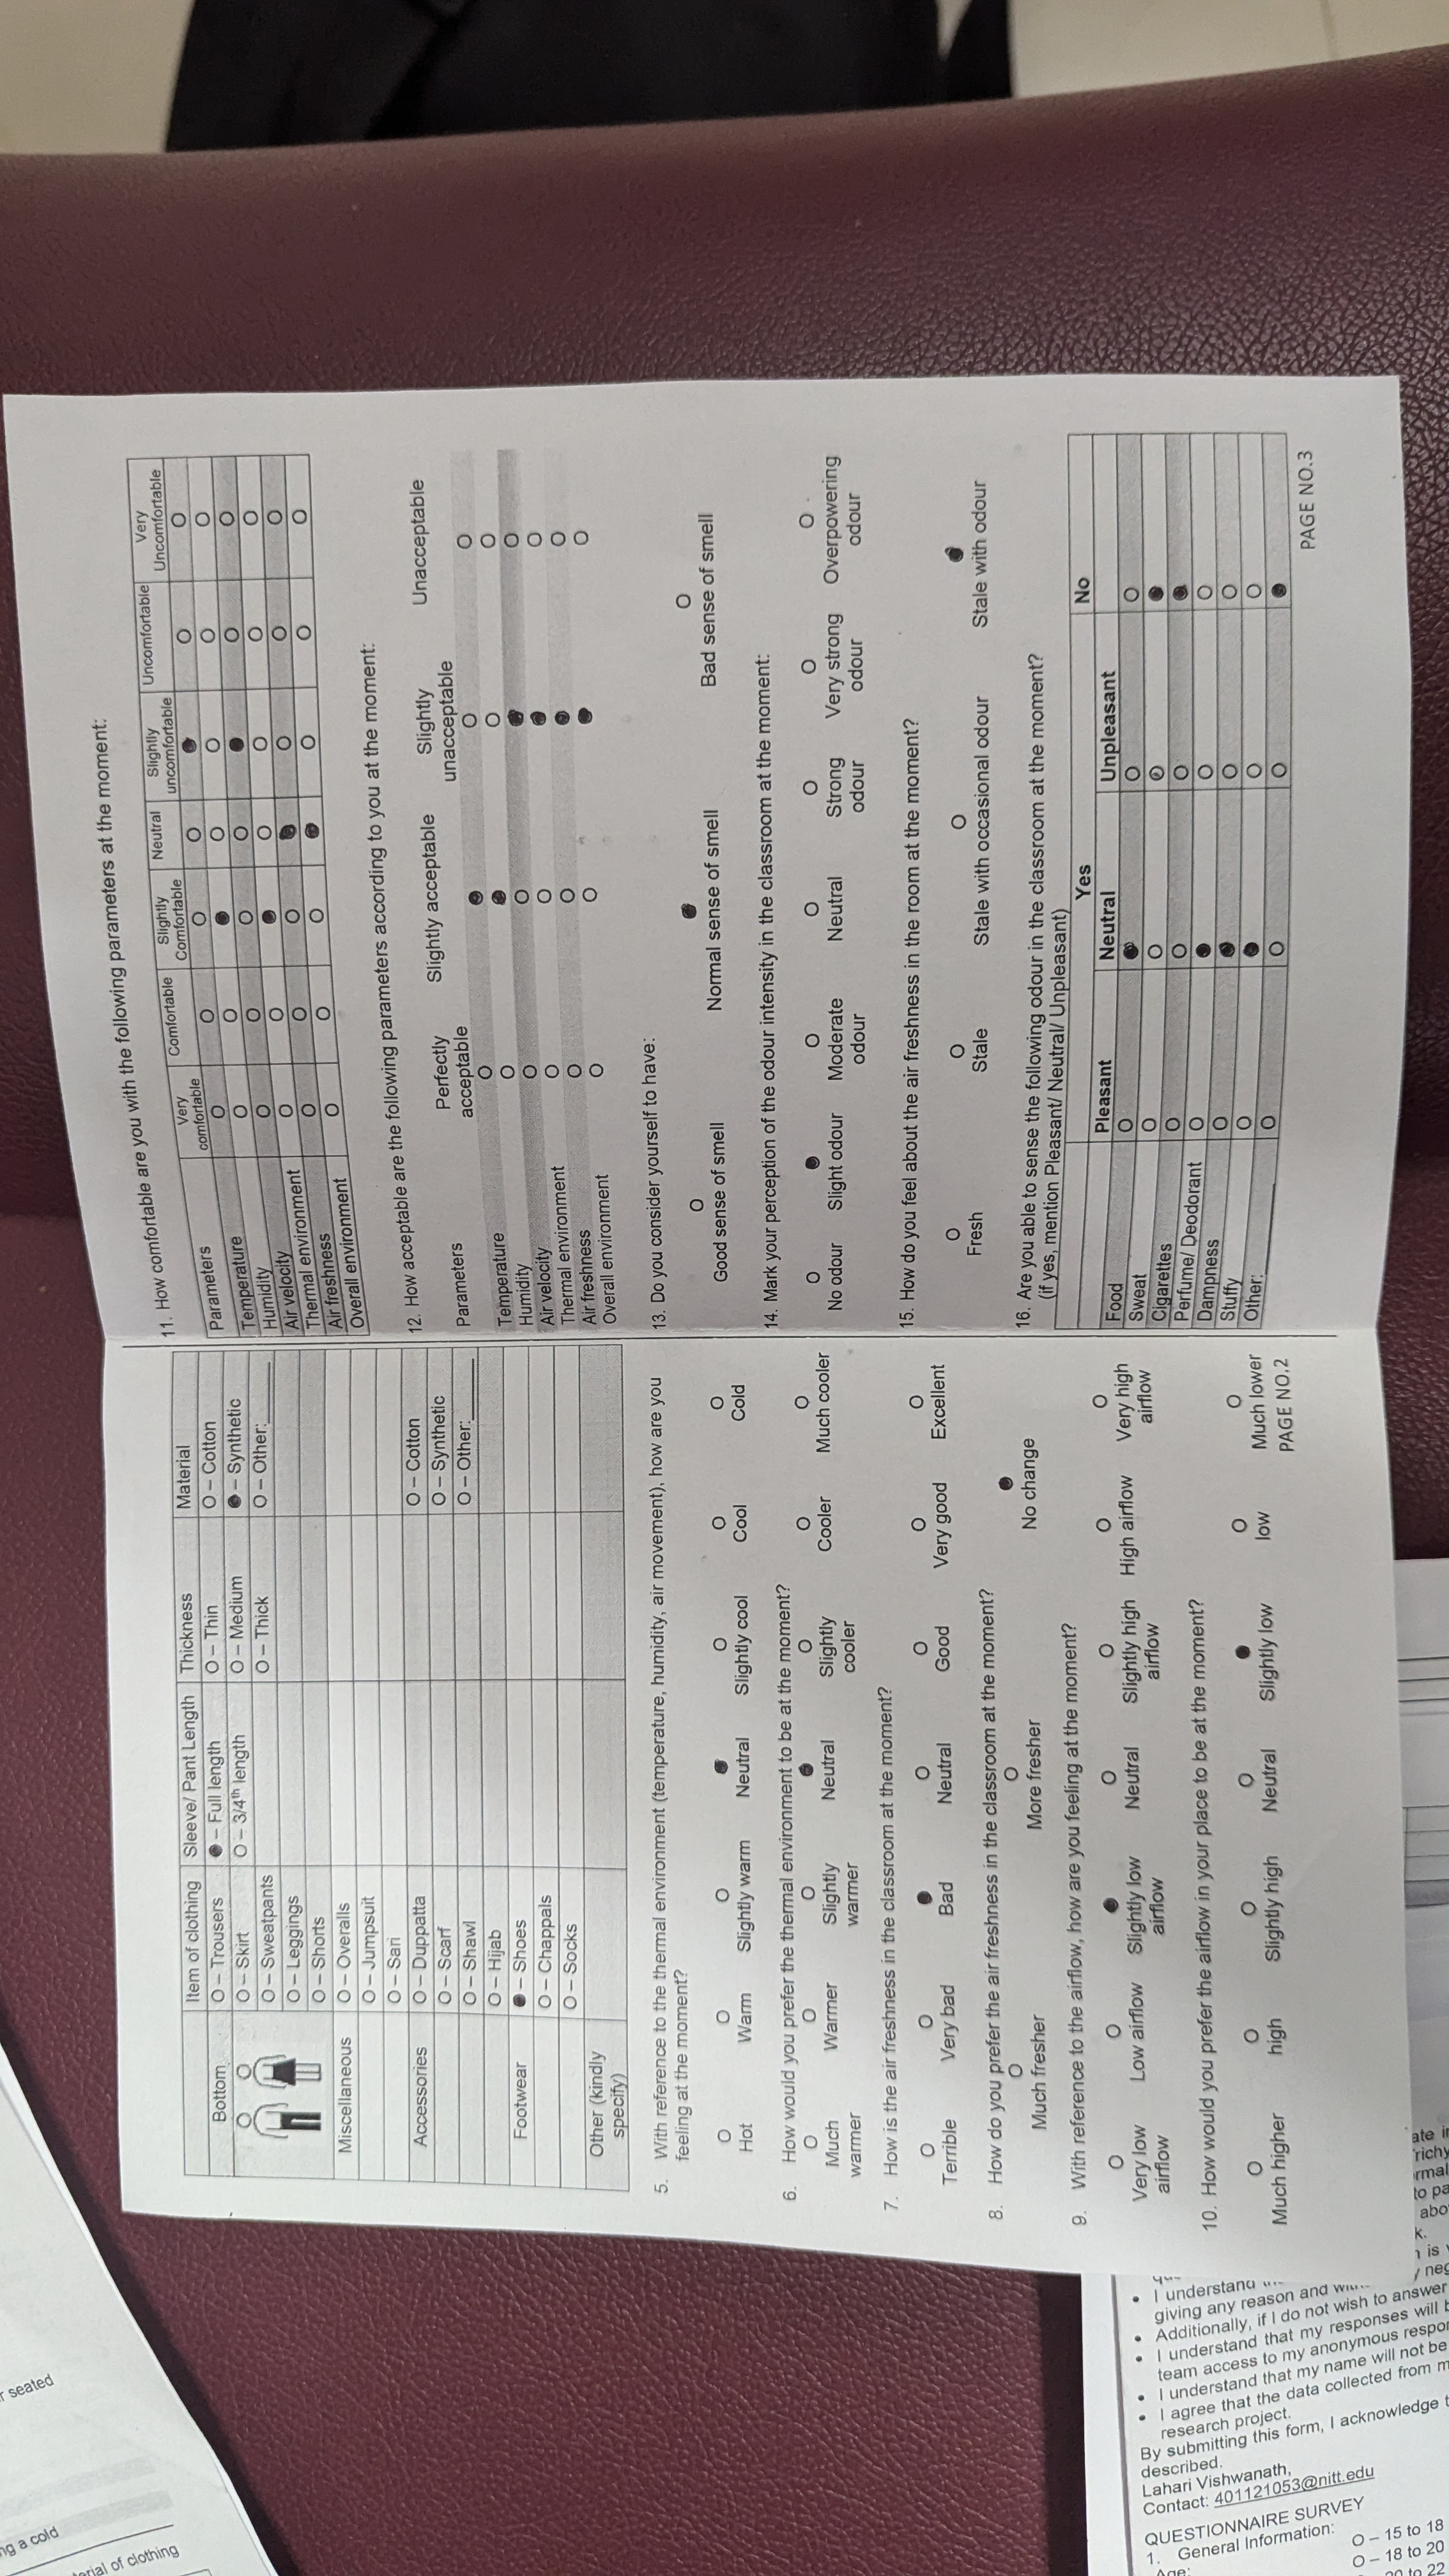 ng a cold
r seated
erial of clothing
Item of clothing Sleeve/ Pant Length Thickness Material
Bottom O – Trousers ● – Full length O – Thin O – Cotton
O – Skirt O – 3/4th length O – Medium ● – Synthetic
O – Sweatpants O – Thick O – Other:______
O – Leggings
O – Shorts
Miscellaneous O – Overalls
O – Jumpsuit
O – Sari
Accessories O – Duppatta O – Cotton
O – Scarf O – Synthetic
O – Shawl O – Other:______
O – Hijab
Footwear ● – Shoes
O – Chappals
O – Socks
Other (kindly
specify)
5. With reference to the thermal environment (temperature, humidity, air movement), how are you
feeling at the moment?
O O O ● O O O
Hot Warm Slightly warm Neutral Slightly cool Cool Cold
6. How would you prefer the thermal environment to be at the moment?
O O O ● O O O
Much Warmer Slightly Neutral Slightly Cooler Much cooler
warmer warmer cooler
7. How is the air freshness in the classroom at the moment?
O O ● O O O O
Terrible Very bad Bad Neutral Good Very good Excellent
8. How do you prefer the air freshness in the classroom at the moment?
O O ●
Much fresher More fresher No change
9. With reference to the airflow, how are you feeling at the moment?
O O ● O O O O
Very low Low airflow Slightly low Neutral Slightly high High airflow Very high
airflow airflow airflow airflow
10. How would you prefer the airflow in your place to be at the moment?
O O O O ● O O
Much higher high Slightly high Neutral Slightly low low Much lower
PAGE NO.2
11. How comfortable are you with the following parameters at the moment:
Parameters Very comfortable Comfortable Slightly Comfortable Neutral Slightly uncomfortable Uncomfortable Very Uncomfortable
Temperature O O O O ● O O
Humidity O O ● O O O O
Air velocity O O O O ● O O
Thermal environment O O ● O O O O
Air freshness O O O ● O O O
Overall environment O O O ● O O O
12. How acceptable are the following parameters according to you at the moment:
Parameters Perfectly acceptable Slightly acceptable Slightly unacceptable Unacceptable
Temperature O ● O O
Humidity O ● O O
Air velocity O O ● O
Thermal environment O O ● O
Air freshness O O ● O
Overall environment O O ● O
13. Do you consider yourself to have:
O ● O
Good sense of smell Normal sense of smell Bad sense of smell
14. Mark your perception of the odour intensity in the classroom at the moment:
O ● O O O O O
No odour Slight odour Moderate Neutral Strong Very strong Overpowering
odour odour odour odour
15. How do you feel about the air freshness in the room at the moment?
O O O ●
Fresh Stale Stale with occasional odour Stale with odour
16. Are you able to sense the following odour in the classroom at the moment?
(if yes, mention Pleasant/ Neutral/ Unpleasant)
Yes No
Pleasant Neutral Unpleasant
Food O ● O O
Sweat O O O ●
Cigarettes O O O ●
Perfume/ Deodorant O ● O O
Dampness O ● O O
Stuffy O ● O O
Other:__________ O O O ●
PAGE NO.3
• I understand
giving any reason and
• Additionally, if I do not wish to answer
• I understand that my responses will
team access to my anonymous
• I understand that my name will not be
• I agree that the data collected from
research project.
By submitting this form, I acknowledge
described.
Lahari Vishwanath,
Contact: 401121053@nitt.edu
QUESTIONNAIRE SURVEY
1. General Information:
O – 15 to 18
O – 18 to 20